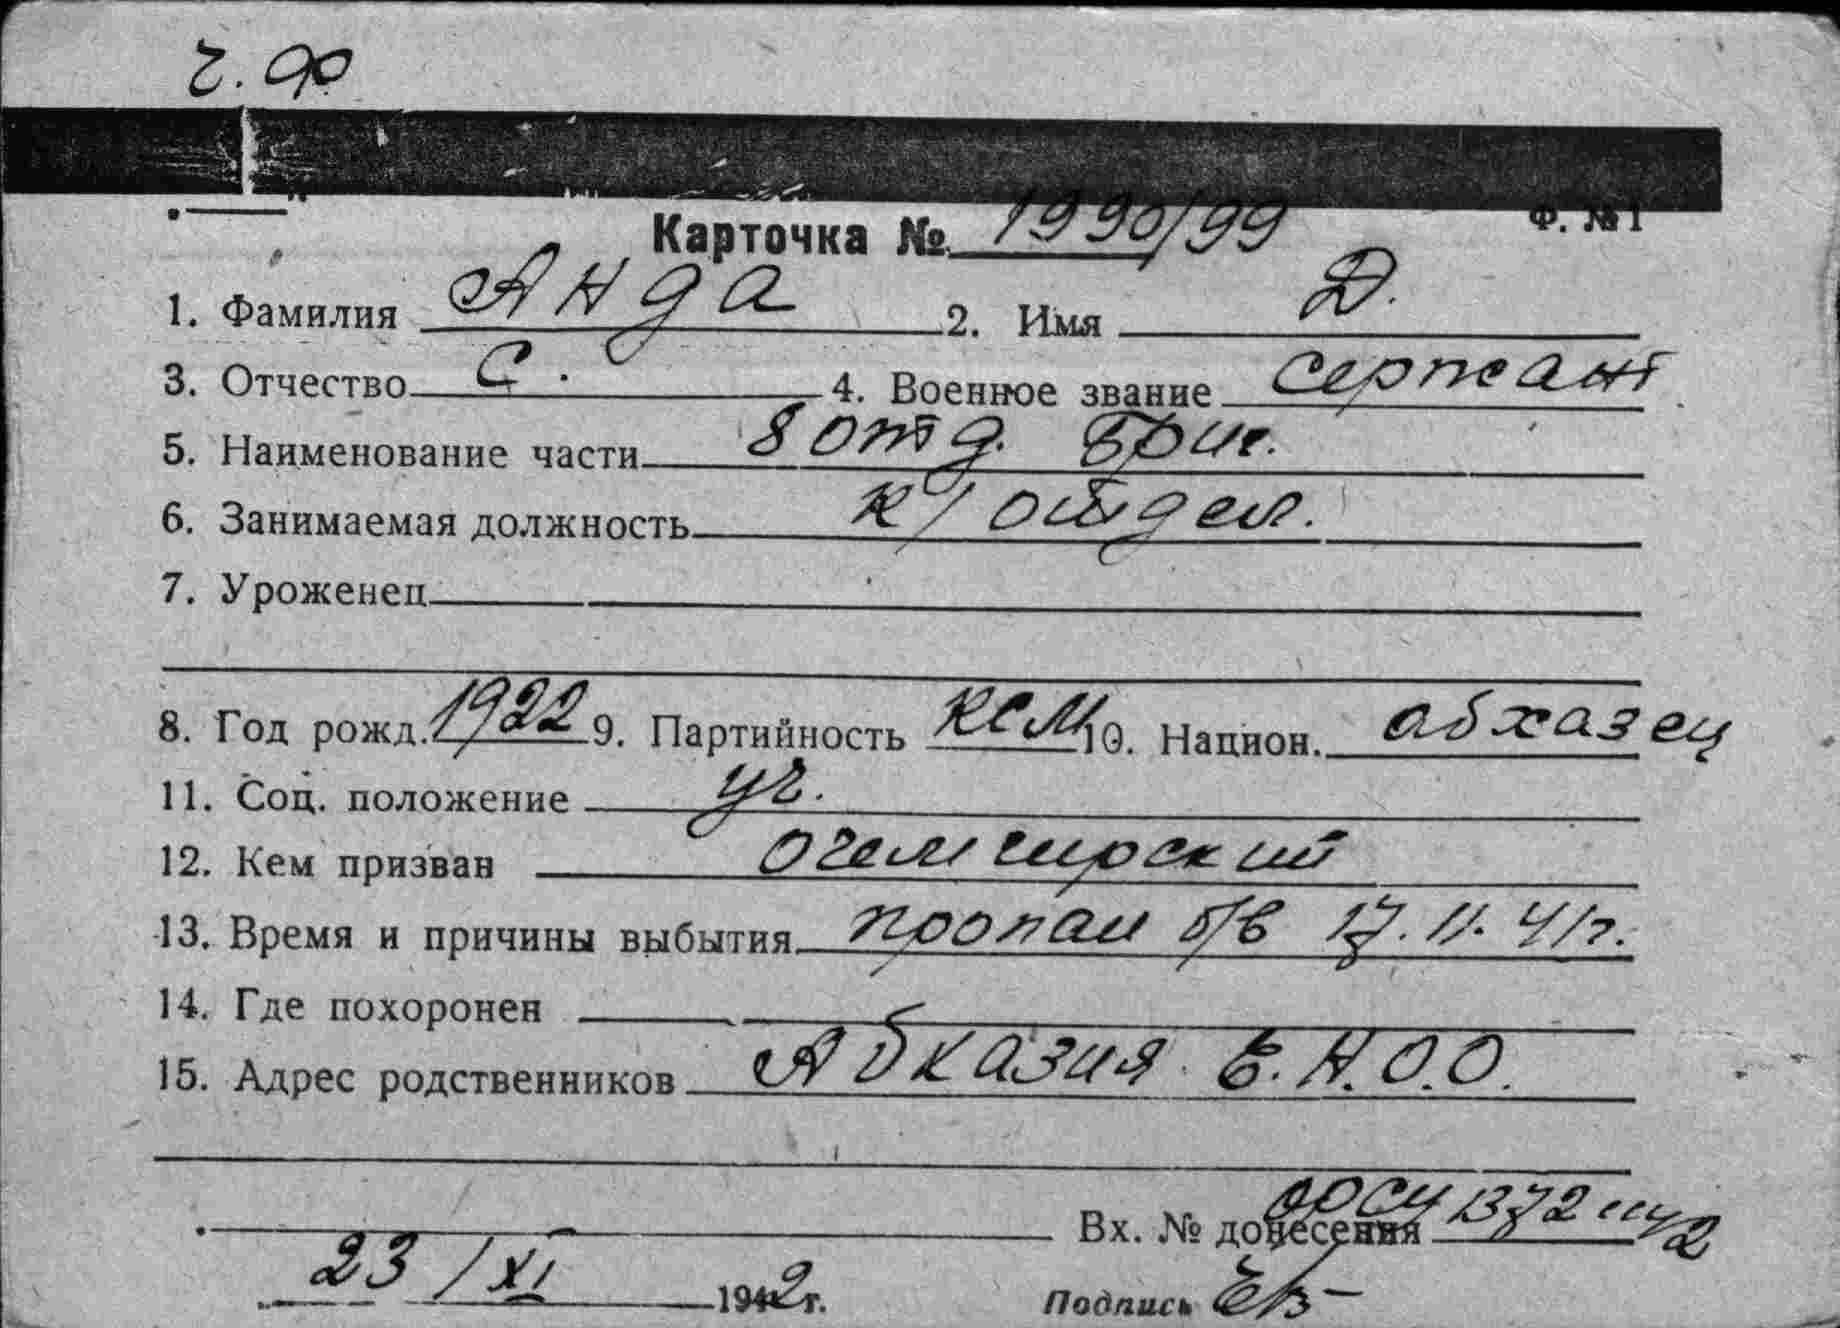 Ч. Ф
Ф. № 1
Карточка № 1990/99
1. Фамилия Анда 2. Имя Д.
3. Отчество С. 4. Военное звание сержант
5. Наименование части 8 отд. бриг.
6. Занимаемая должность к/отдел.
7. Уроженец
8. Год рожд. 1922 9. Партийность КСМ 10. Национ. абхазец
11. Соц. положение уч.
12. Кем призван Очемчирский
13. Время и причины выбытия пропал б/в 17.11.41г.
14. Где похоронен
15. Адрес родственников Абхазия Е.Н.О.О.
Вх. № донесения 1372
23/XI 1942 г. Подпись